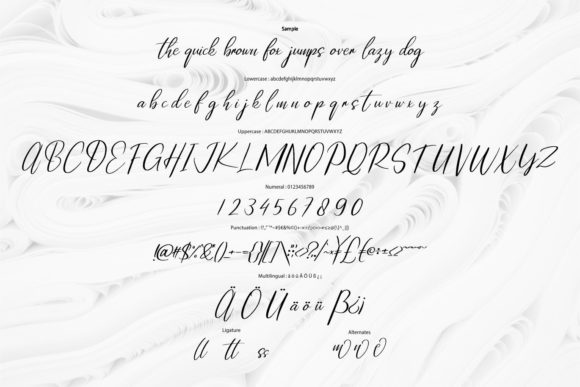 Sample
the quick brown fox jumps over lazy dog
Lowercase : abcdefghijklmnopqrstuvwxyz
a b c d e f g h i j k l m n o p q r s t u v w x y z
Uppercase : ABCDEFGHIJKLMNOPQRSTUVWXYZ
ABCDEFGHIJKLMNOPQRSTUVWXYZ
Numeral : 0123456789
1 2 3 4 5 6 7 8 9 0
Multilingual : ä ö ü Ä Ö Ü ß ¿ ¡
Ä Ö Ü ä ö ü ß ¿ ¡
Ligature
ll tt ss
Alternates